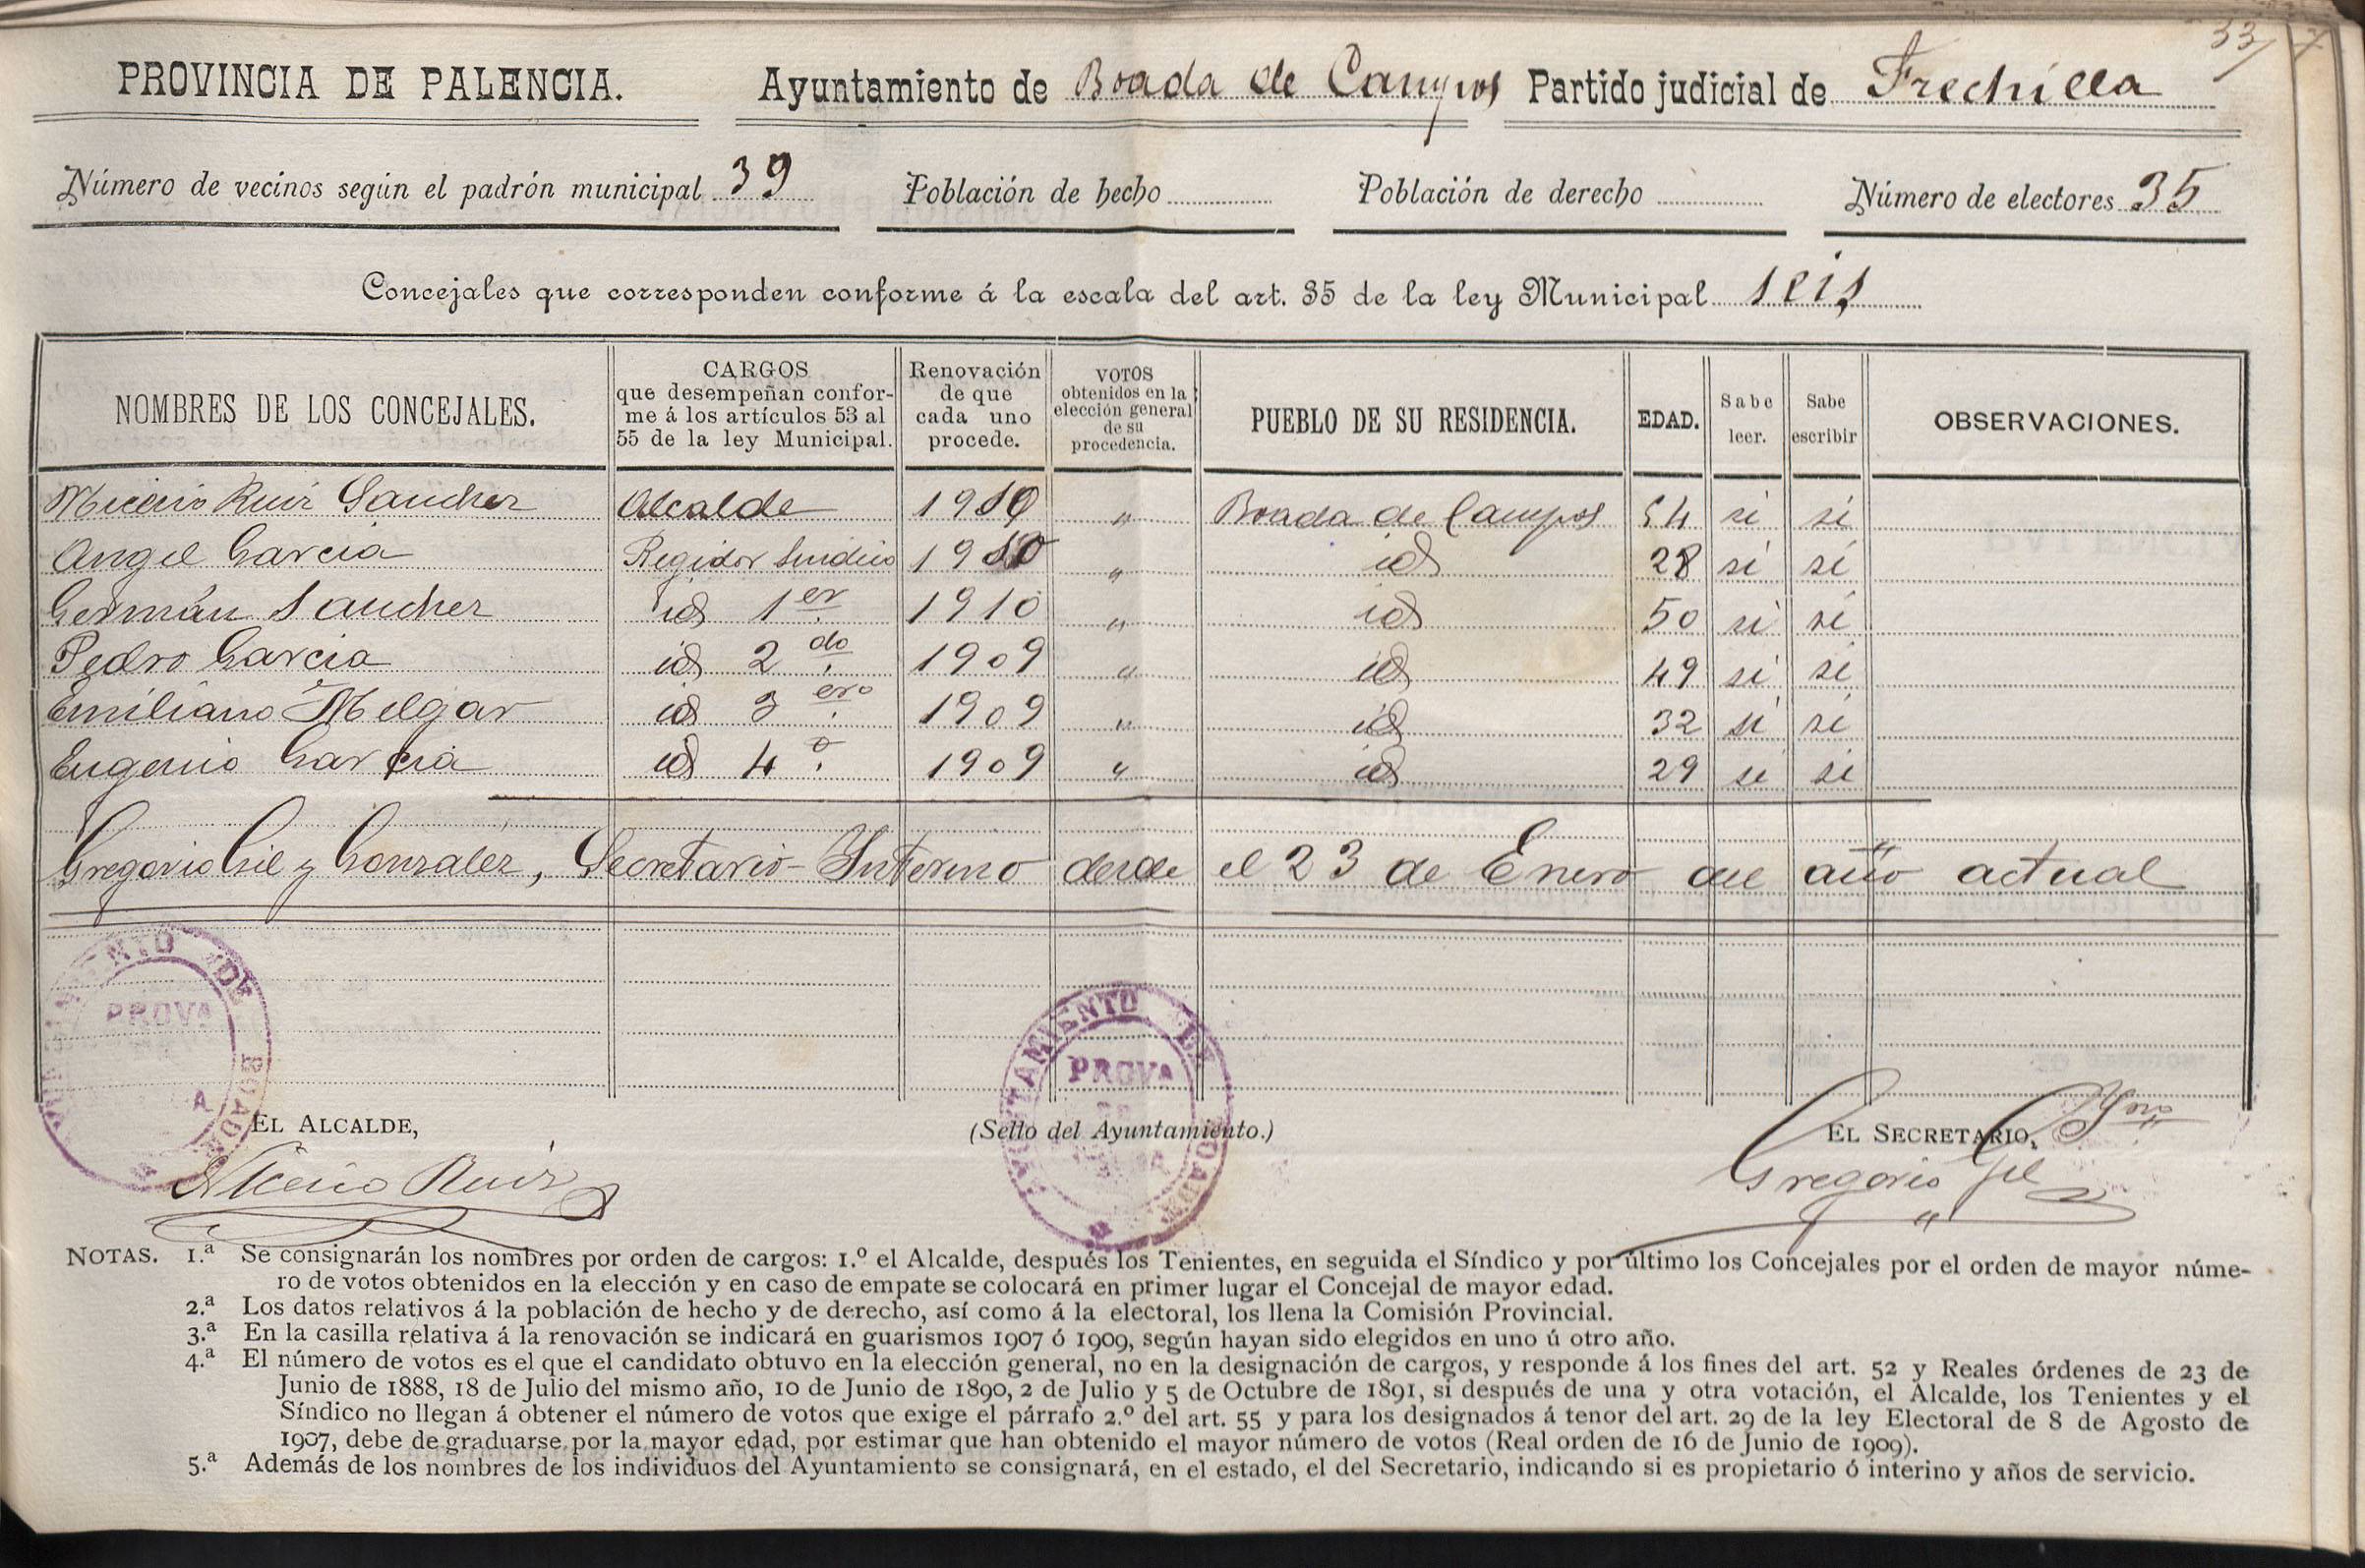 33 7
PROVINCIA DE PALENCIA. Ayuntamiento de Boada de Campos Partido judicial de Frechilla
Número de vecinos según el padrón municipal 39 Población de hecho Población de derecho Número de electores 35
Concejales que corresponden conforme á la escala del art. 35 de la ley Municipal seis
NOMBRES DE LOS CONCEJALES. CARGOS que desempeñan confor- me á los artículos 53 al 55 de la ley Municipal. Renovación de que cada uno procede. VOTOS obtenidos en la elección general de su procedencia. PUEBLO DE SU RESIDENCIA. EDAD. Sabe leer. Sabe escribir OBSERVACIONES.
Niceno Ruiz Sanchez Alcalde 1910 " Boada de Campos 54 si si
Angel Garcia Regidor Sindico 1910 " id 28 si si
Germán Sanchez id 1er 1910 " id 50 si si
Pedro Garcia id 2do 1909 " id 49 si si
Emiliano Melgar id 3ero 1909 " id 32 si si
Eugenio Garcia id 4º 1909 " id 29 si si
Gregorio Gil y Gonzalez, Secretario-Interino desde el 23 de Enero del año actual
AYUNTAMIENTO DE BOADA
PROVA
AYUNTAMIENTO DE BOADA
PROVA
EL ALCALDE, (Sello del Ayuntamiento.) EL SECRETARIO, Yno
Niceno Ruiz Gregorio Gil
NOTAS. 1.ª Se consignarán los nombres por orden de cargos: 1.º el Alcalde, después los Tenientes, en seguida el Síndico y por último los Concejales por el orden de mayor núme-
ro de votos obtenidos en la elección y en caso de empate se colocará en primer lugar el Concejal de mayor edad.
2.ª Los datos relativos á la población de hecho y de derecho, así como á la electoral, los llena la Comisión Provincial.
3.ª En la casilla relativa á la renovación se indicará en guarismos 1907 ó 1909, según hayan sido elegidos en uno ú otro año.
4.ª El número de votos es el que el candidato obtuvo en la elección general, no en la designación de cargos, y responde á los fines del art. 52 y Reales órdenes de 23 de
Junio de 1888, 18 de Julio del mismo año, 10 de Junio de 1890, 2 de Julio y 5 de Octubre de 1891, si después de una y otra votación, el Alcalde, los Tenientes y el
Síndico no llegan á obtener el número de votos que exige el párrafo 2.º del art. 55 y para los designados á tenor del art. 29 de la ley Electoral de 8 de Agosto de
1907, debe de graduarse por la mayor edad, por estimar que han obtenido el mayor número de votos (Real orden de 16 de Junio de 1909).
5.ª Además de los nombres de los individuos del Ayuntamiento se consignará, en el estado, el del Secretario, indicando si es propietario ó interino y años de servicio.